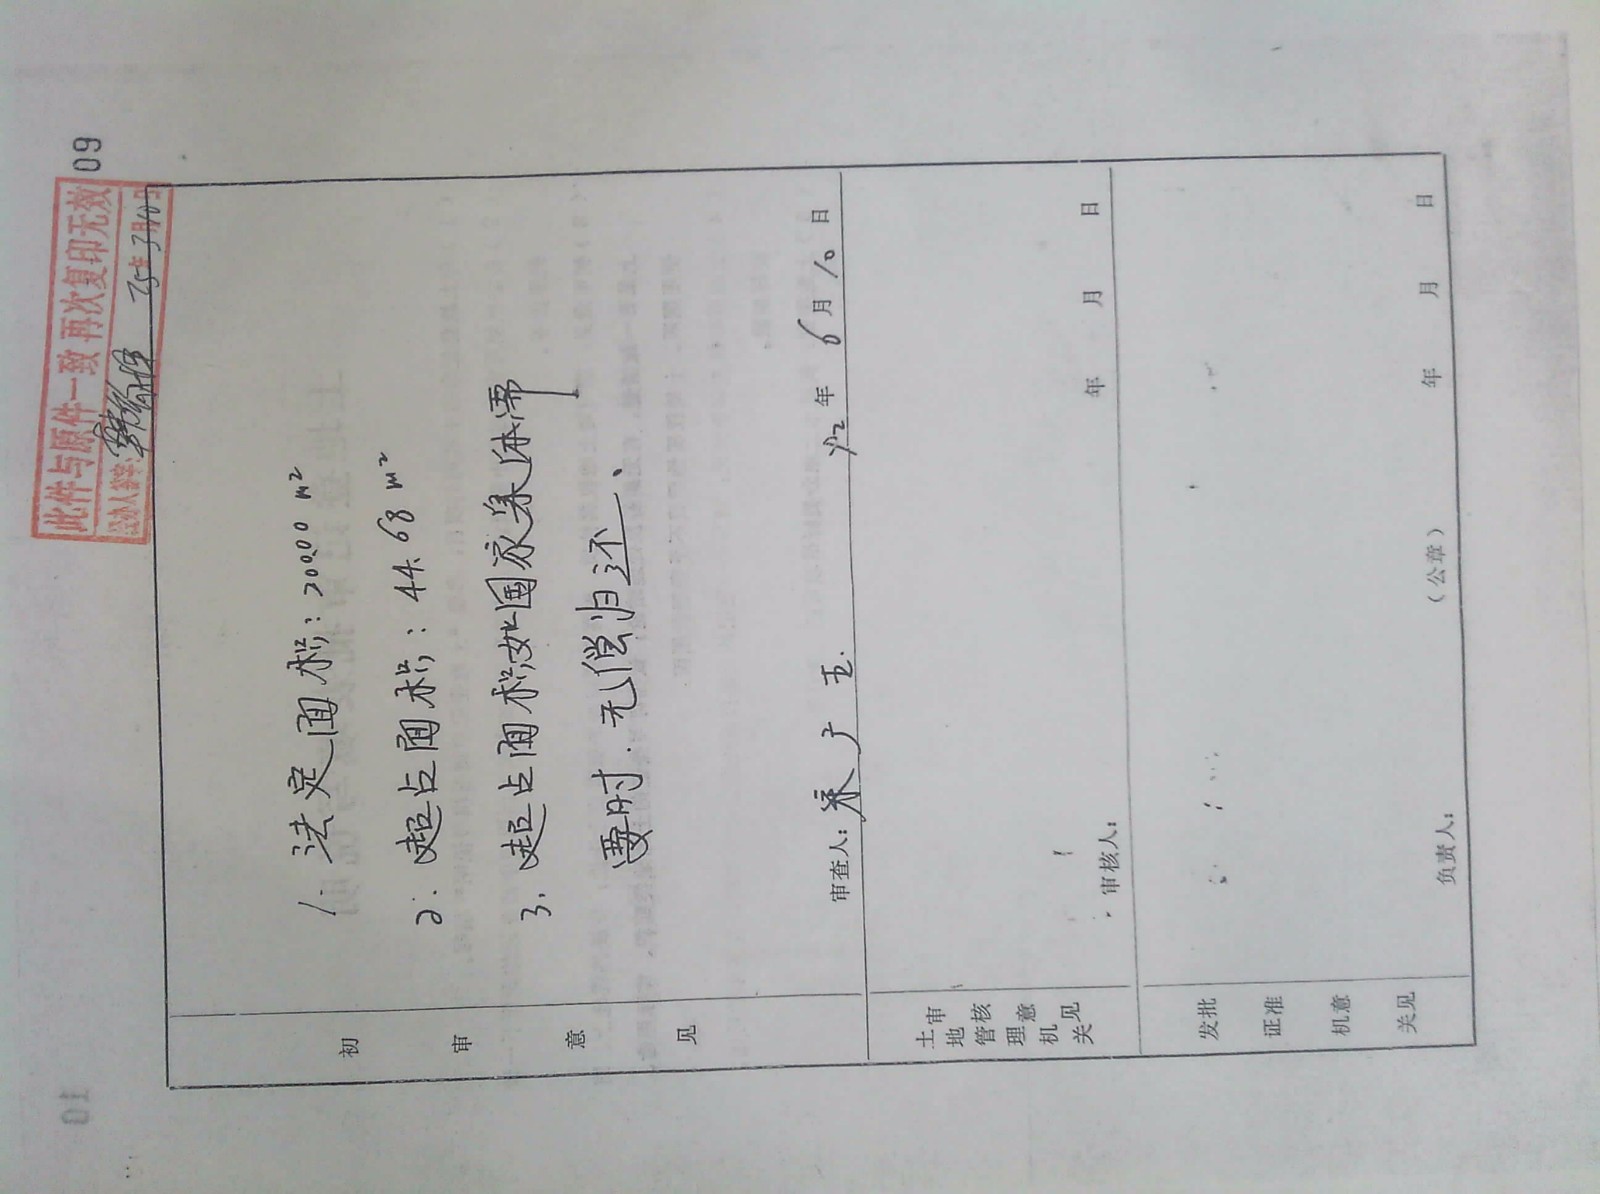 09
此件与原件一致 再次复印无效
经办人签字:
25年3月10日
初审意见
1. 法定面积: 200.00 m²
2. 超占面积: 44.68 m²
3. 超占面积如国家集体需
要时.无偿归还、
审查人: 玉. 92年 6月 10日
土地管理机关审核意见
审核人: 年 月 日
发证机关批准意见
(公章)
负责人: 年 月 日
10